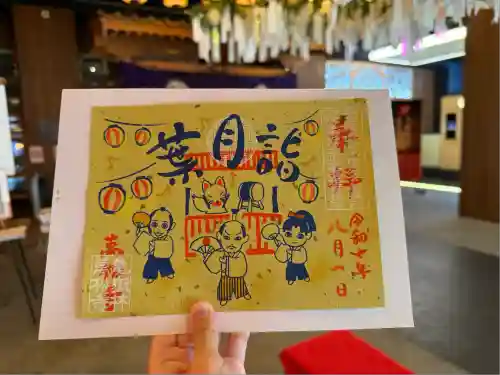 葉月詣
奉拝
令和七年
八月一日